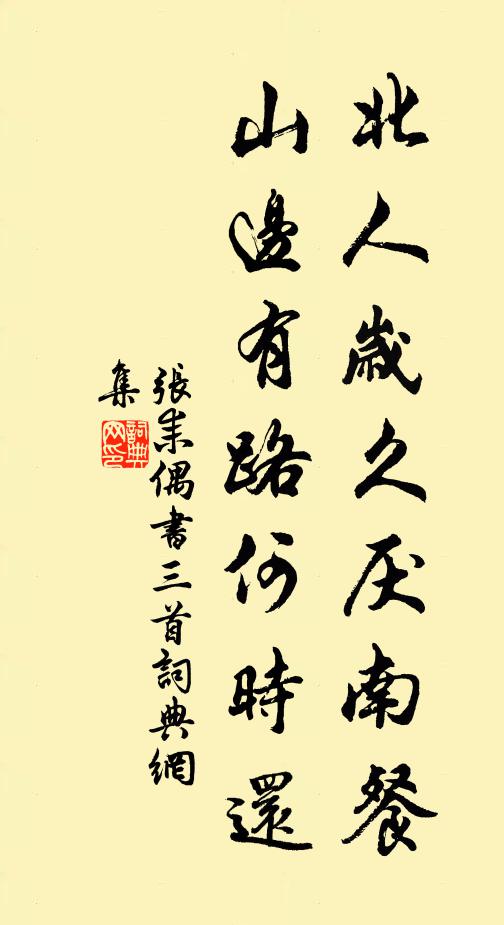 北人歲久厌南餐
山邊有路何時還
張耒偶書三首詞典網
集
詞典
网印